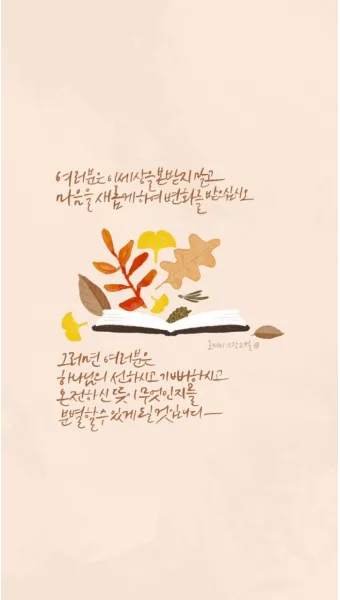 여러분은 이 세상을 본받지 말고
마음을 새롭게 하여 변화를 받으십시오
로마서 12장 2절
그러면 여러분은
하나님의 선하시고 기뻐하시고
온전하신 뜻이 무엇인지를
분별할 수 있게 될 것입니다